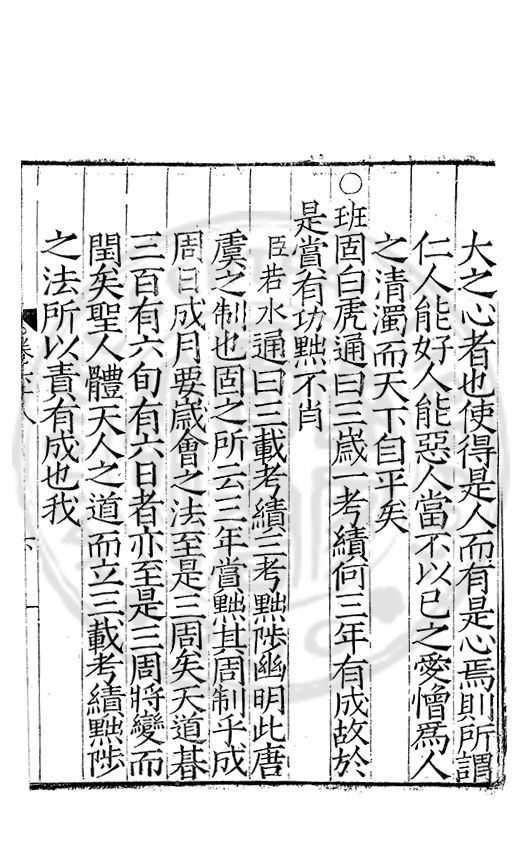 大之心者也使得是人而有是心焉則所謂
仁人能好人能惡人當不以己之愛憎爲人
之清濁而天下自平矣
○班固白虎通曰三歲一考績何三年有成故於
是賞有功黜不肖
臣若水通曰三載考績三考黜陟幽明此唐
虞之制也固之所云三年賞黜其周制乎成
周日成月要歲會之法至是三周矣天道朞
三百有六旬有六日者亦至是三周將變而
閏矣聖人體天人之道而立三載考績黜陟
之法所以責有成也我